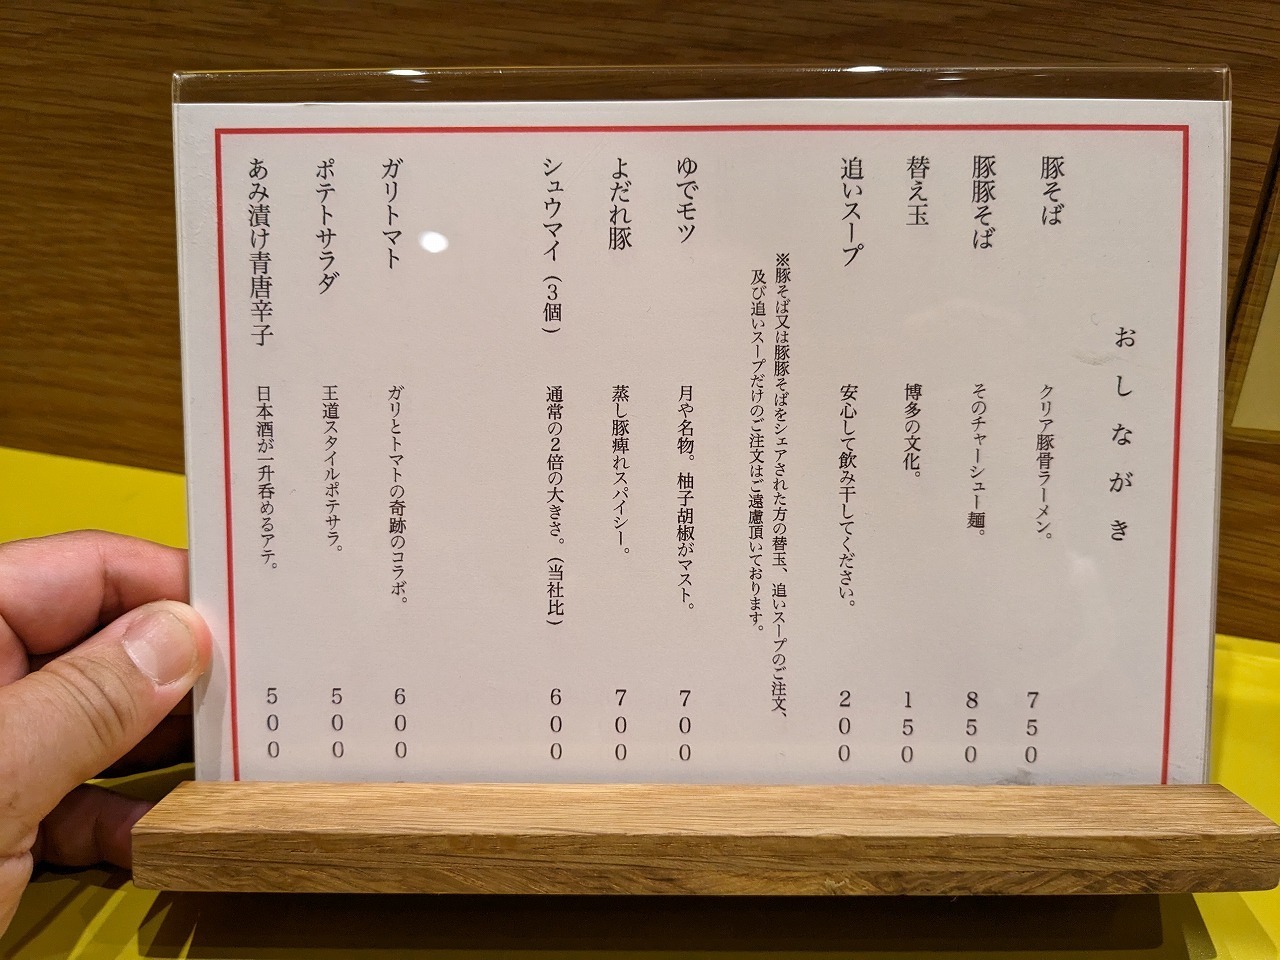 おしながき
豚そば　クリア豚骨ラーメン。　750
豚豚そば　そのチャーシュー麺。　850
替え玉　博多の文化。　150
追いスープ　安心して飲み干してください。　200
※豚そば又は豚豚そばをシェアされた方の替玉、追いスープのご注文、
及び追いスープだけのご注文はご遠慮頂いております。
ゆでモツ　月や名物。柚子胡椒がマスト。　700
よだれ豚　蒸し豚痺れスパイシー。　700
シュウマイ（3個）　通常の2倍の大きさ。（当社比）　600
ガリトマト　ガリとトマトの奇跡のコラボ。　600
ポテトサラダ　王道スタイルポテサラ。　500
あみ漬け青唐辛子　日本酒が一升呑めるアテ。　500